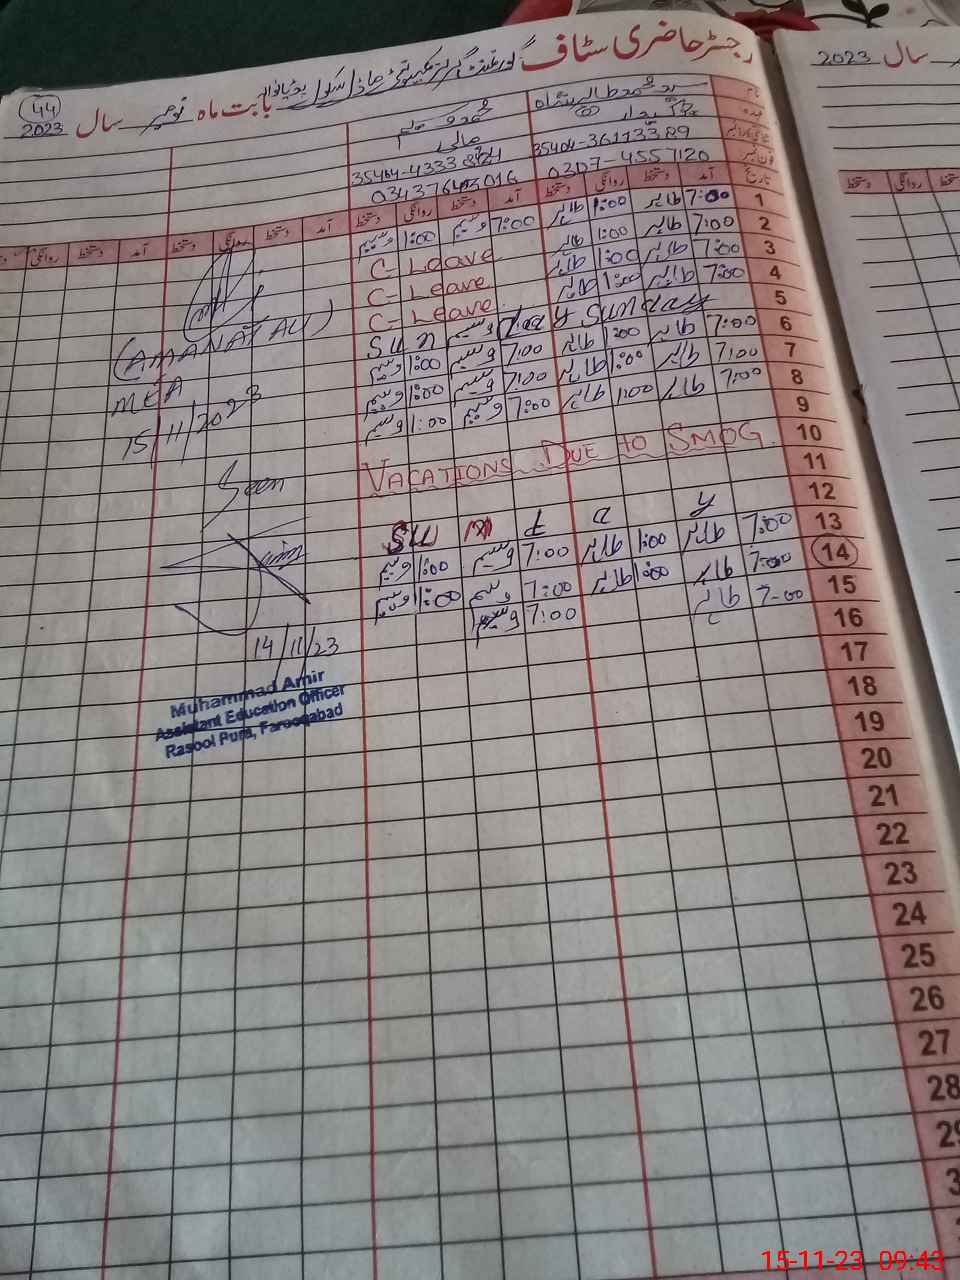 رجسٹر حاضری سٹاف
44
2023 سال نومبر بابت ماہ
سال 2023
نام
عہدہ
محمد وسیم
مالی چوکیدار
35404-36113389
0343764 3016 0307-4557120
تاریخ آمد دستخط روانگی دستخط آمد دستخط روانگی دستخط آمد دستخط روانگی دستخط آمد دستخط روانگی دستخط
دستخط روانگی دستخط
1 7:00 طاہر 1:00 طاہر 7:00 وسیم 1:00 وسیم
2 7:00 طاہر 1:00 طاہر C-Leave
3 7:00 طاہر 1:00 طاہر C-Leave
4 7:00 طاہر 1:00 طاہر C-Leave
5 Sunday Sunday
6 7:00 طاہر 1:00 طاہر 7:00 وسیم 1:00 وسیم
7 7:00 طاہر 1:00 طاہر 7:00 وسیم 1:00 وسیم
8 7:00 طاہر 1:00 طاہر 7:00 وسیم 1:00 وسیم
9
10 VACATIONS DUE TO SMOG
11
12 Sunday
13 7:00 طاہر 1:00 طاہر 7:00 وسیم 1:00 وسیم
14 7:00 طاہر 1:00 طاہر 7:00 وسیم 1:00 وسیم
15 7-00 طاہر 7:00 وسیم
16
17
18
19
20
21
22
23
24
25
26
27
28
29
(AMANAT ALI)
MEA
15/11/2023
Seen
14/11/23
Muhammad Amir
Assistant Education Officer
Rasool Pura, Farooqabad
15-11-23 09:43